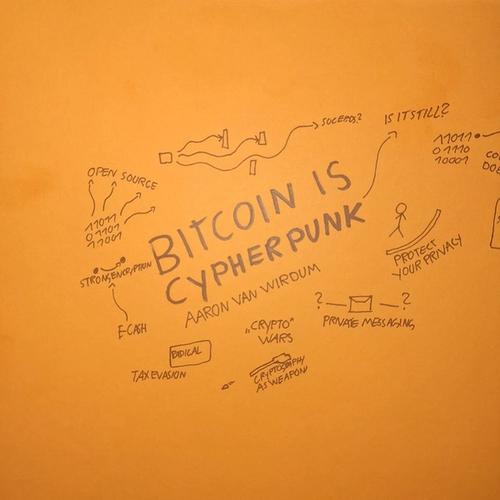 SUCEEDS?
IS IT STILL?
11011
01110
10001
OPEN SOURCE
11011
01101
11001
BITCOIN IS
CYPHERPUNK
AARON VAN WIRDUM
STRONG ENCRYPTION
E-CASH
PROTECT
YOUR PRIVACY
? ?
PRIVATE MESSAGING
"CRYPTO"
WARS
RADICAL
TAX EVASION
CRYPTOGRAPHY
AS WEAPON